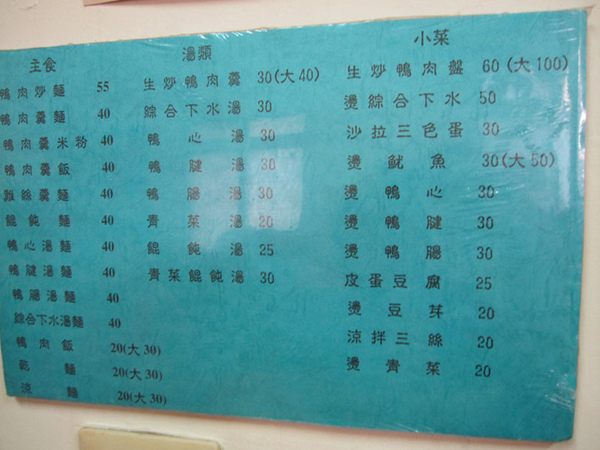 主食
鴨肉炒麵 55
鴨肉羹麵 40
鴨肉羹米粉 40
鴨肉羹飯 40
雞絲羹麵 40
餛飩麵 40
鴨心湯麵 40
鴨腱湯麵 40
鴨腸湯麵 40
綜合下水湯麵 40
鴨肉飯 20(大30)
乾麵 20(大30)
涼麵 20(大30)
湯類
生炒鴨肉羹 30(大40)
綜合下水湯 30
鴨心湯 30
鴨腱湯 30
鴨腸湯 30
青菜湯 20
餛飩湯 25
青菜餛飩湯 30
小菜
生炒鴨肉盤 60(大100)
燙綜合下水 50
沙拉三色蛋 30
燙魷魚 30(大50)
燙鴨心 30
燙鴨腱 30
燙鴨腸 30
皮蛋豆腐 25
燙豆芽 20
涼拌三絲 20
燙青菜 20